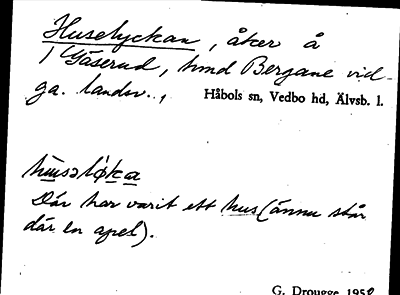 Huselyckan, åker å
1 Gäserud, hmd Bergane vid
ga. landsv., Håbols sn, Vedbo hd, Älvsb. l.
hu̅sǝlø̀ka
Där har varit ett hus (ännu står
där en apel).
G. Drougge 1950